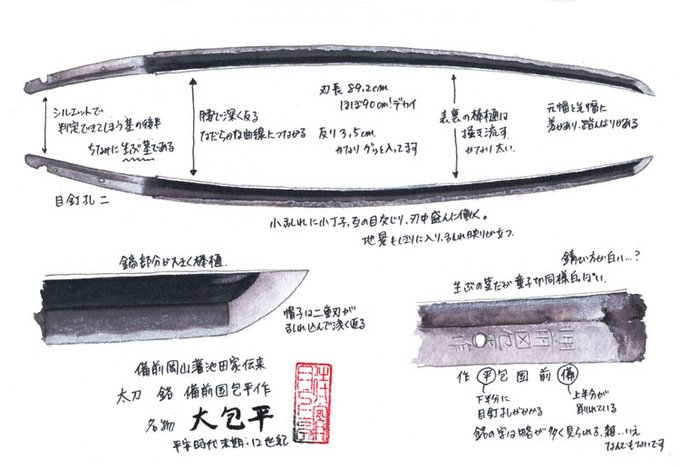 刃長 89.2cm
ほぼ90cm!デカイ
反り 3.5cm.
かなりグッと入ってます
シルエットで
判定できてしまう茎の後半
ちなみに生ぶ茎である
腰で深く反る
なだらかな曲線につながる
表裏の棒樋は
掻き流す
かなり太い.
元幅と先幅に
差があり、踏んばりがある
目釘孔二
小乱れに小丁子、互の目交じり、刃中盛んに働く。
地景もしきりに入り、乱れ映りが立つ.
鎬部分が大きく棒樋.
帽子は二重刃が
乱れ込んで浅く返る
錆び方が白い…?
生ぶの茎だが童子切同様白っぽい.
備前国包平作
作 平 包 国 前 備
下半分に
目釘孔がかかる
上半分が
削れている
銘の字は略が多く見られる、雑…いえ
なんでもないです
備前岡山藩池田家伝来
太刀 銘 備前国包平作
名物 大包平
平安時代末期:12世紀